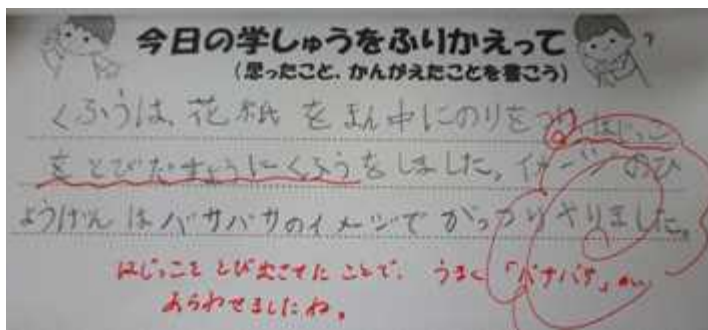 今日の学しゅうをふりかえって
(思ったこと、かんがえたことを書こう)
くふうは、花紙をまん中にのりをつけ、はじっこ
をとびだすようにくふうをしました。イメージのひ
ょうげんはバサバサのイメージでがっつりやりました。
はじっこをとび出させたことで、うまく「バサバサ」が
あらわせましたね。